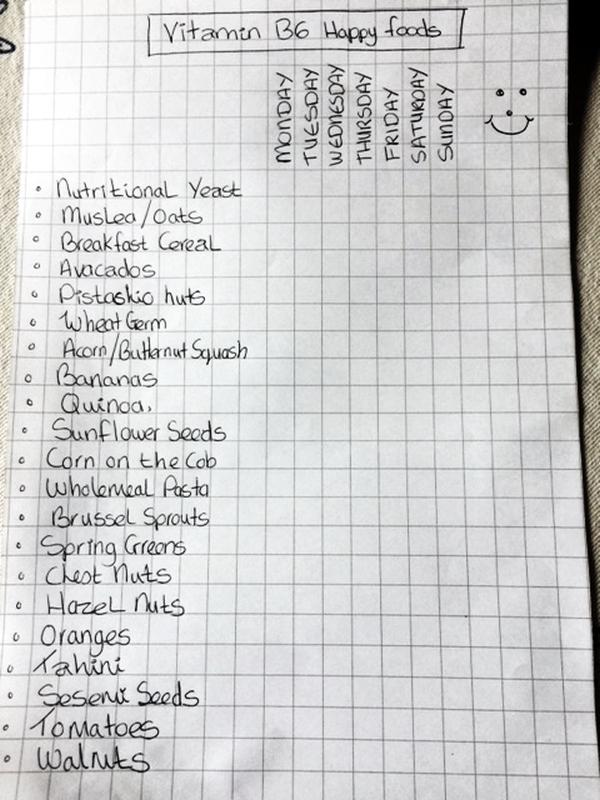 Vitamin B6 Happy foods
MONDAY
TUESDAY
WEDNESDAY
THURSDAY
FRIDAY
SATURDAY
SUNDAY
Nutritional Yeast
Muslea/Oats
Breakfast Cereal
Avacados
Pistaskio nuts
Wheat Germ
Acorn/Butternut Squash
Bananas
Quinoa.
Sunflower Seeds
Corn on the Cob
Wholemeal Pasta
Brussel Sprouts
Spring Greens
Chest Nuts
Hazel Nuts
Oranges
Tahini
Sesemi Seeds
Tomatoes
Walnuts